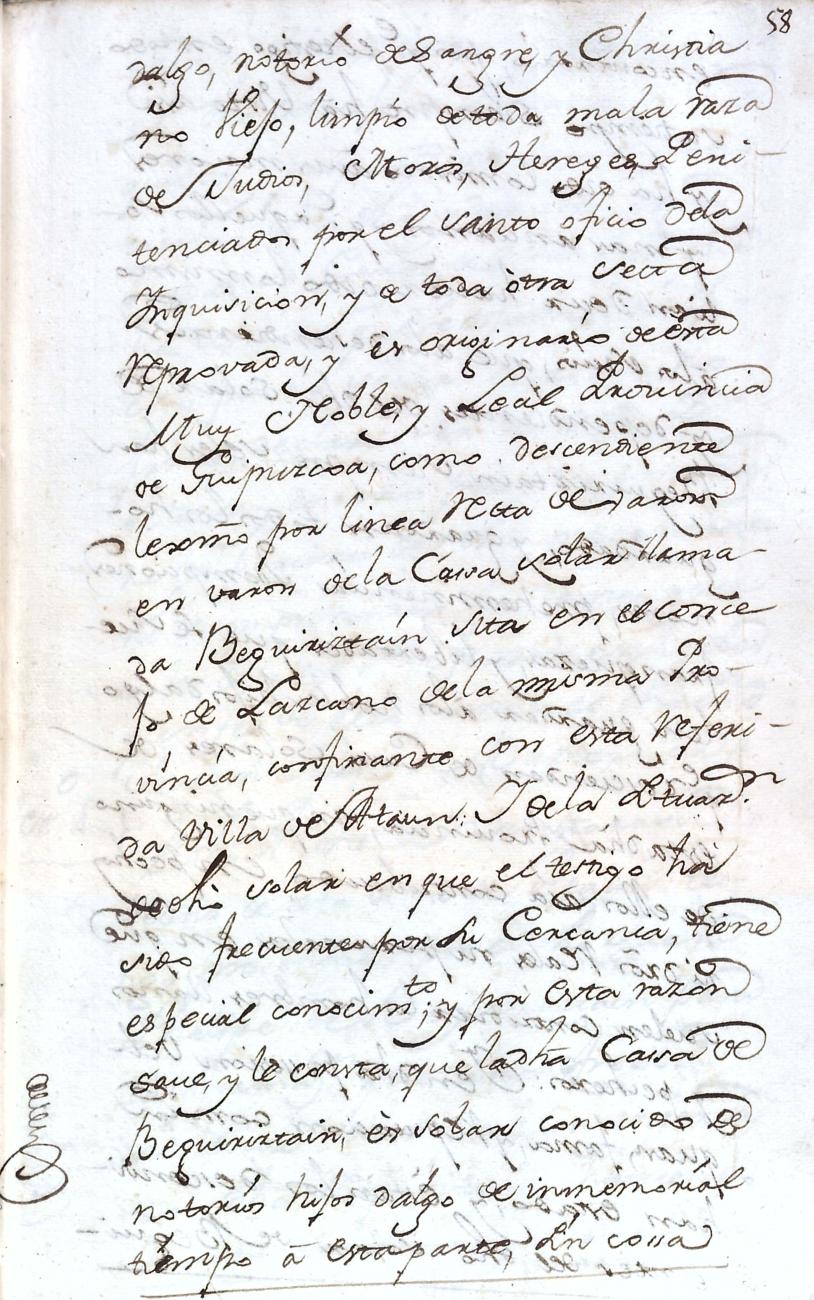 58
dalgo, notorio de Sangre, y Christia
no Viejo, limpio de toda mala raza
de Judios, Moros, Hereges, Peni-
tenciados por el santo oficio dela
Inquisicion, y de toda otra secta
reprovada, y és originario de ésta
Muy Noble, y Leal Provincia
de Guipuzcoa, como descendiente
lexmo por linea recta de varon
en varon dela Cassa solar llama-
da Beguiriztain sita en el conce
jo de Lazcano dela misma Pro-
vincia, confinante con esta referi-
da Villa de Ataun. I dela
dcho solar en que el testigo ha
sido frecuente por su Cercania, tiene
especial conocimto; y por esta razon
save, y le consta, que la dha Cassa de
Beguiriztain, és solar conocido de
notorios hijos dalgo de inmemorial
tiempo á esta parte, En cossa